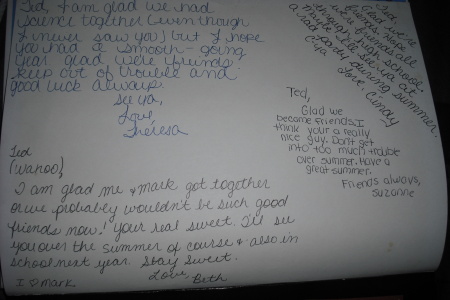 Ted, I am glad we had
science together (even though
I never saw you) but I hope
you had a smooth-going
year glad were friends
keep out of trouble and
good luck always.
See ya,
Love,
Theresa
Ted,
friends, hope
were friends all
high school.
maybe I'll see ya at
a rad party during summer.
C-ya
Love Cindy
Ted,
Glad we
became friends. I
think your a really
nice guy. Don't get
into too much trouble
over summer. Have a
great summer.
Friends always,
Suzanne
Ted
(Wahoo),
I am glad me & Mark got together
or we probably wouldn't be such good
friends now! your real sweet. I'll see
you over the summer of course & also in
school next year. Stay Sweet.
Love, Beth
I ♡ Mark